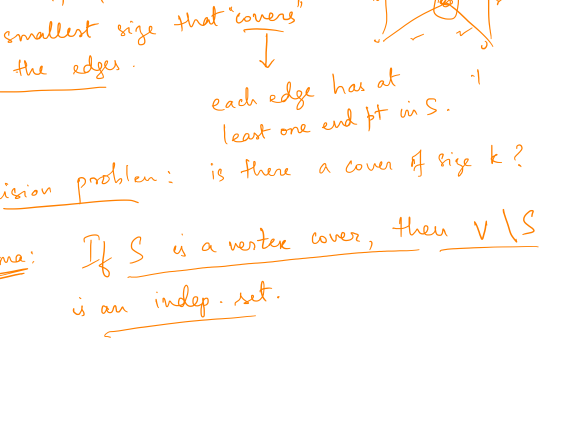 smallest size that "covers"
the edges.
each edge has at
least one end pt in S.
ision problem: is there a cover of size k?
ma: If S is a vertex cover, then V \ S
is an indep. set.